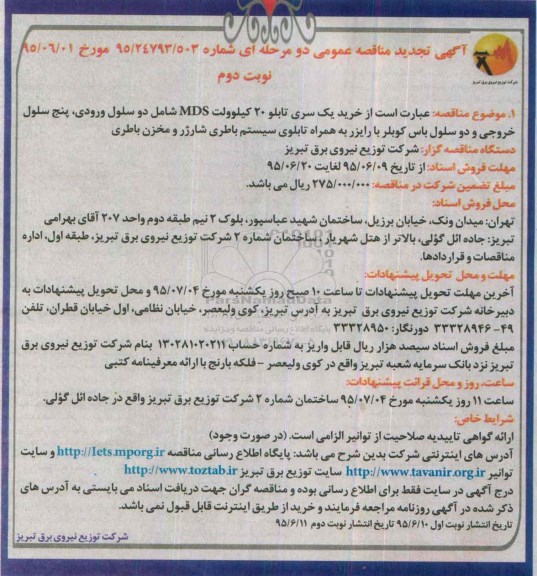 آگهی تجدید مناقصه عمومی دو مرحله ای شماره ۹۵/۲۴۷۹۳/۵۰۳ مورخ ۹۵/۰۶/۰۱
نوبت دوم
شرکت توزیع نیروی برق تبریز
۱. موضوع مناقصه: عبارت است از خرید یک سری تابلو ۲۰ کیلوولت MDS شامل دو سلول ورودی، پنج سلول
خروجی و دو سلول باس کوپلر با رایزر به همراه تابلوی سیستم باطری شارژر و مخزن باطری
دستگاه مناقصه گزار: شرکت توزیع نیروی برق تبریز
مهلت فروش اسناد: از تاریخ ۹۵/۰۶/۰۹ لغایت ۹۵/۰۶/۲۰
مبلغ تضمین شرکت در مناقصه: ۲۷۵/۰۰۰/۰۰۰ ریال می باشد.
محل فروش اسناد:
تهران: میدان ونک، خیابان برزیل، ساختمان شهید عباسپور، بلوک ۲ نیم طبقه دوم واحد ۲۰۷ آقای بهرامی
تبریز: جاده ائل گؤلی، بالاتر از هتل شهریار، ساختمان شماره ۲ شرکت توزیع نیروی برق تبریز، طبقه اول، اداره
مناقصات و قراردادها.
مهلت و محل تحویل پیشنهادات:
آخرین مهلت تحویل پیشنهادات تا ساعت ۱۰ صبح روز یکشنبه مورخ ۹۵/۰۷/۰۴ و محل تحویل پیشنهادات به
دبیرخانه شرکت توزیع نیروی برق تبریز به آدرس تبریز، کوی ولیعصر، خیابان نظامی، اول خیابان قطران، تلفن
۴۹- ۳۳۳۲۸۹۴۶ دورنگار: ۳۳۳۲۸۹۵۰
مبلغ فروش اسناد سیصد هزار ریال قابل واریز به شماره حساب ۱۳۰۲۸۱۰۲۰۲۱۱ بنام شرکت توزیع نیروی برق
تبریز نزد بانک سرمایه شعبه تبریز واقع در کوی ولیعصر - فلکه بارنج با ارائه معرفینامه کتبی
ساعت، روز و محل قرائت پیشنهادات:
ساعت ۱۱ روز یکشنبه مورخ ۹۵/۰۷/۰۴ ساختمان شماره ۲ شرکت توزیع برق تبریز واقع در جاده ائل گؤلی.
شرایط خاص:
ارائه گواهی تاییدیه صلاحیت از توانیر الزامی است. (در صورت وجود)
آدرس های اینترنتی شرکت بدین شرح می باشد: پایگاه اطلاع رسانی مناقصه http://Iets.mporg.ir و سایت
توانیر http://www.tavanir.org.ir سایت توزیع برق تبریز http://www.toztab.ir
درج آگهی در سایت فقط برای اطلاع رسانی بوده و مناقصه گران جهت دریافت اسناد می بایستی به آدرس های
ذکر شده در آگهی روزنامه مراجعه فرمایند و خرید از طریق اینترنت قابل قبول نمی باشد.
تاریخ انتشار نوبت اول ۹۵/۶/۱۰ تاریخ انتشار نوبت دوم ۹۵/۶/۱۱
شرکت توزیع نیروی برق تبریز
ParsNamadData
پایگاه اطلاع رسانی مناقصه و مزایده